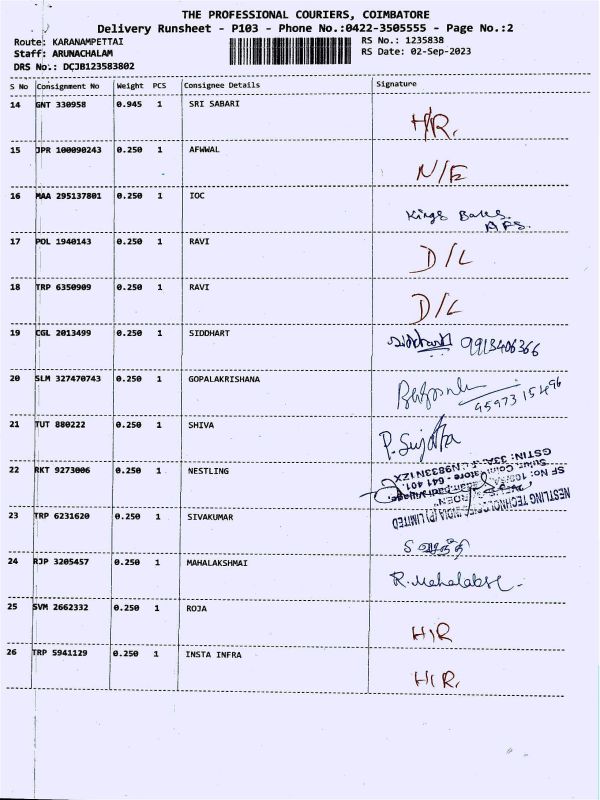 THE PROFESSIONAL COURIERS, COIMBATORE
Delivery Runsheet - P103 - Phone No.:0422-3505555 - Page No.:2
Route: KARANAMPETTAI RS No.: 1235838
Staff: ARUNACHALAM RS Date: 02-Sep-2023
DRS No.: DCJB123583802
S No Consignment No Weight PCS Consignee Details Signature
14 GNT 330958 0.945 1 SRI SABARI
H/R.
15 JPR 100090243 0.250 1 AFWWAL
N/E
16 MAA 295137801 0.250 1 IOC
Kings
AFS.
17 POL 1940143 0.250 1 RAVI
D/L
18 TRP 6350909 0.250 1 RAVI
D/L
19 CGL 2013499 0.250 1 SIDDHART
Siddharth 9913406366
20 SLM 327470743 0.250 1 GOPALAKRISHANA
21 TUT 880222 0.250 1 SHIVA
P. Sujatha
22 RKT 9273006 0.250 1 NESTLING
NESTLING TECHNOLOGIES INDIA (P) LIMITED
SF No:
Coimbatore - 641 401.
GSTIN: 33A
23 TRP 6231620 0.250 1 SIVAKUMAR
S
24 RJP 3205457 0.250 1 MAHALAKSHMAI
R.
25 SVM 2662332 0.250 1 ROJA
H/R
26 TRP 5941129 0.250 1 INSTA INFRA
H/R.